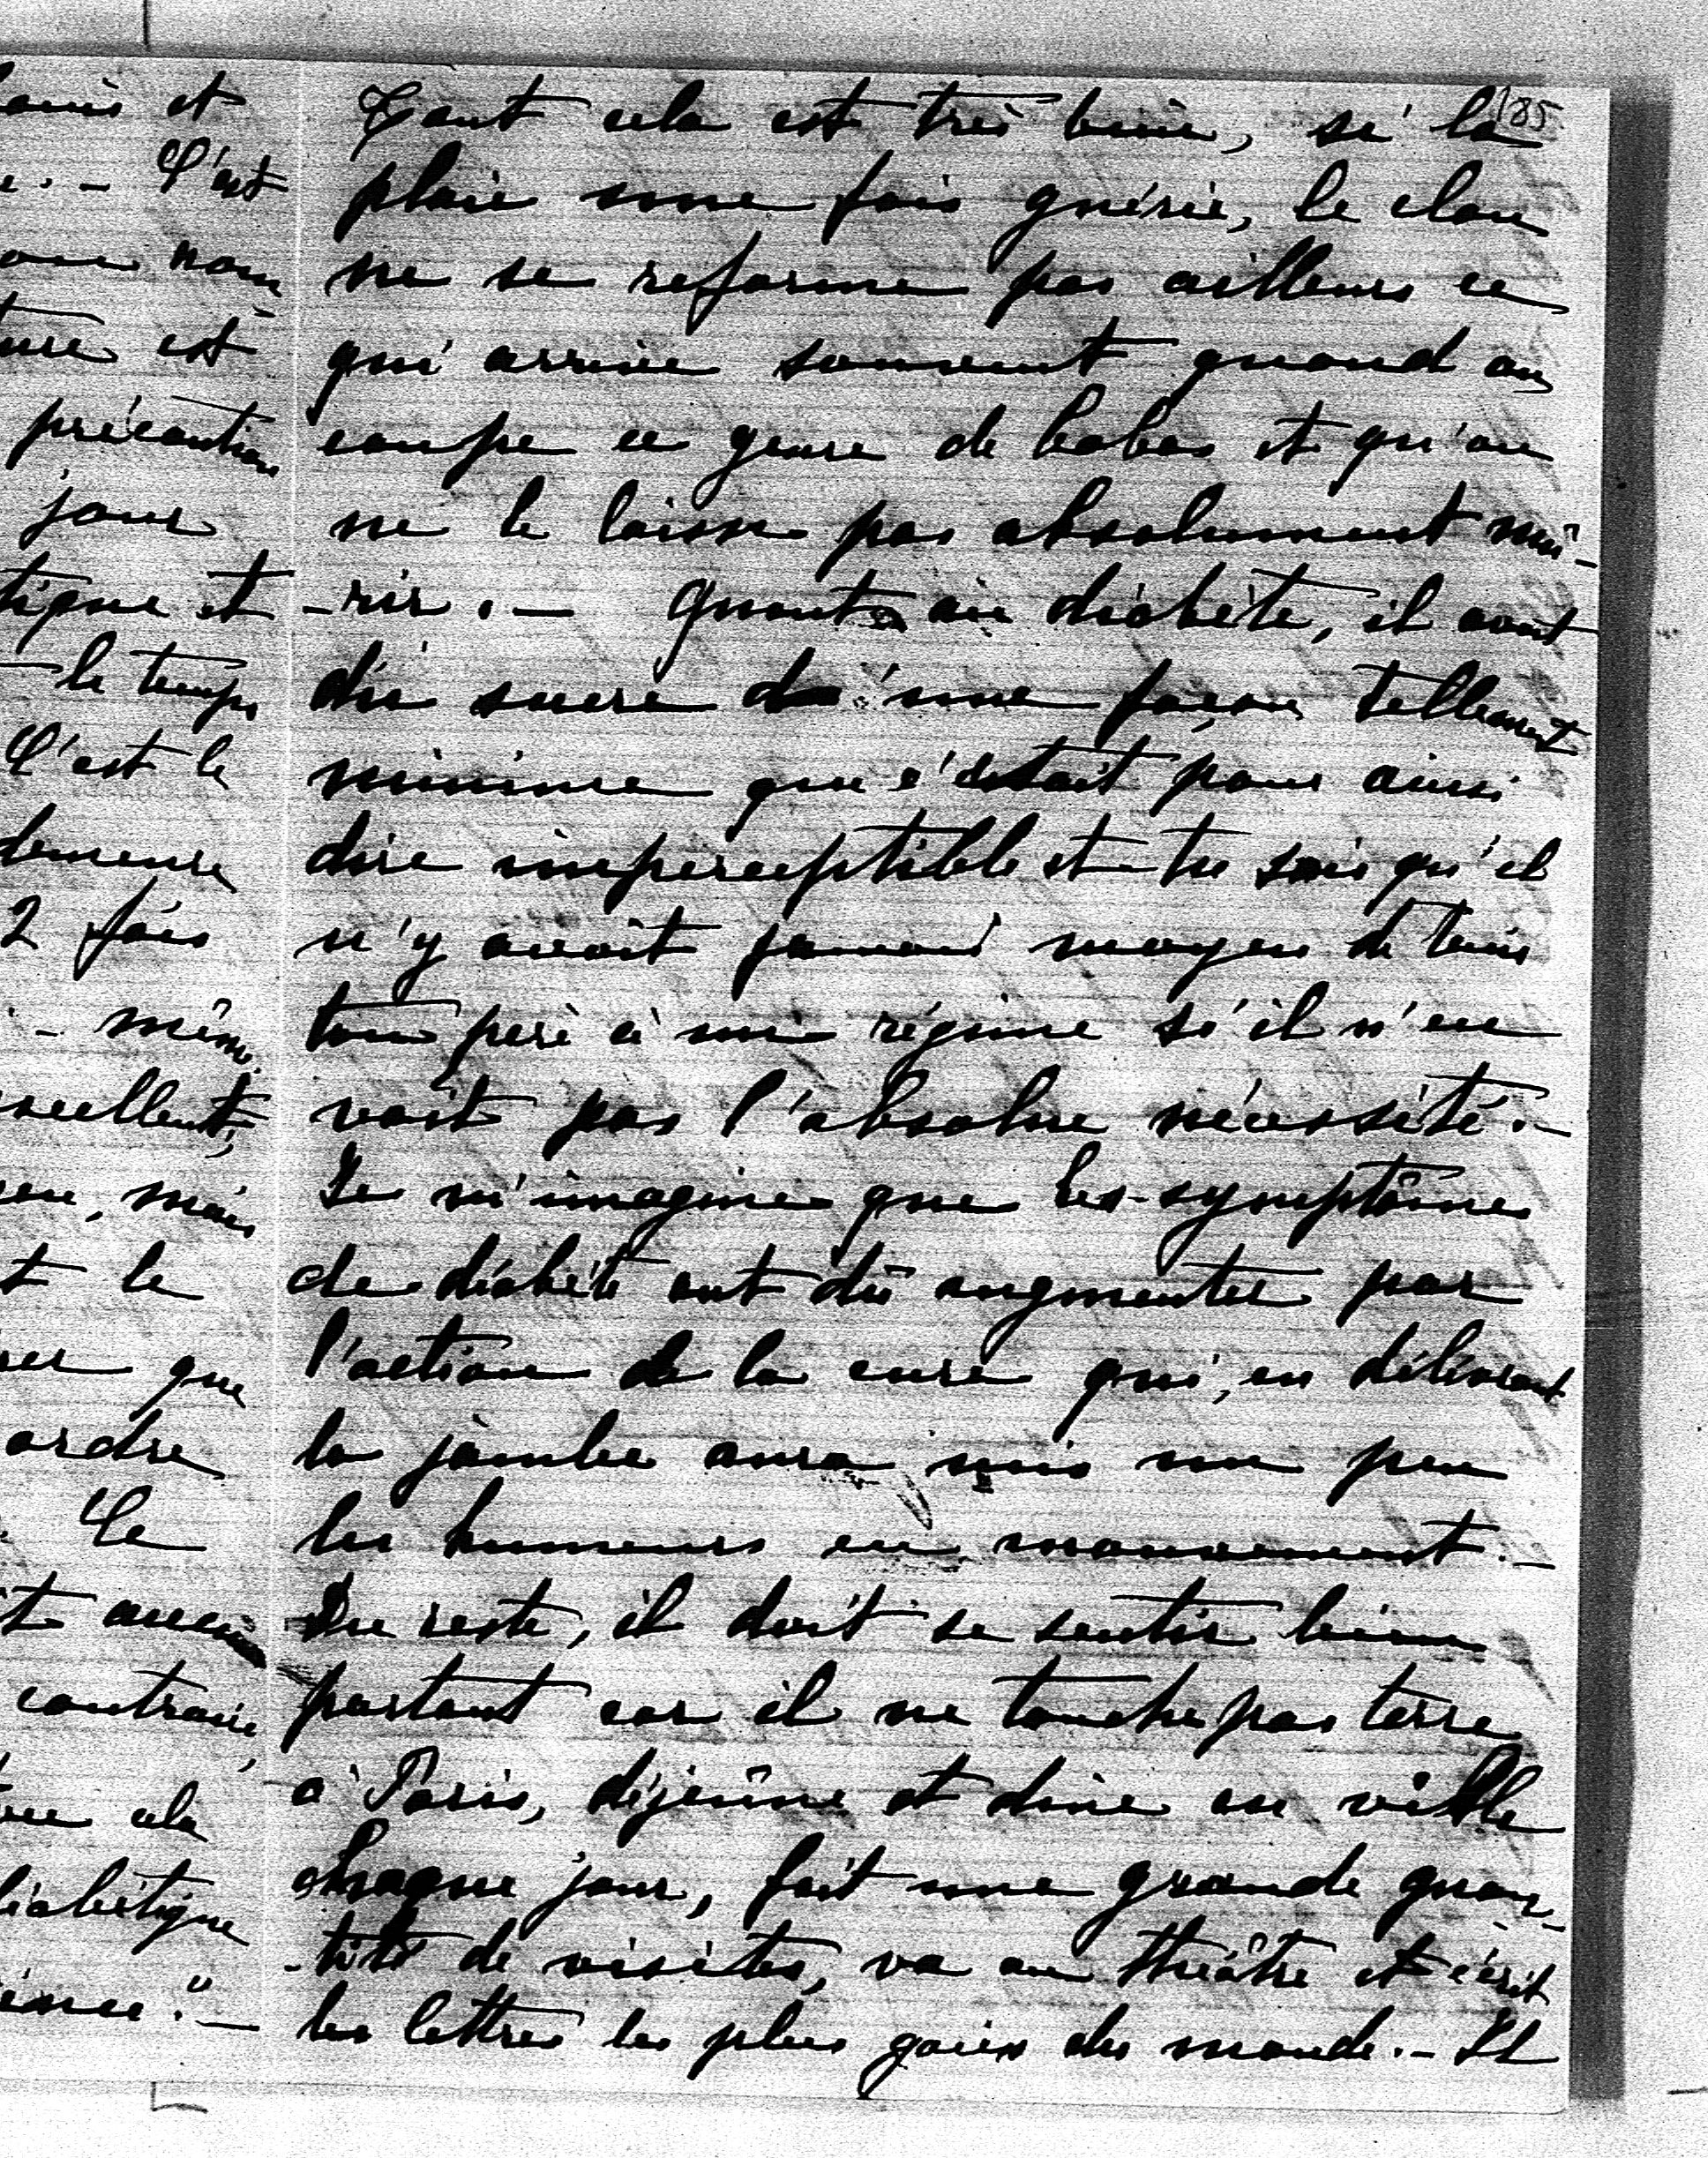 185
Tout cela est très bien, si la
plaie une fois guérie, le clou
ne se reforme pas ailleurs ce
qui arrive souvent quand on
coupe ce genre de bobos et qu'on
ne le laisse pas absolument mû-
-rir. — Quant au diabète, il avait
du sucre d'une façon tellement
minime que c'était pour ainsi
dire imperceptible et tu sais qu'il
n'y avait jamais moyen de tenir
ton père à un régime s'il n'en
voit pas l'absolue nécessité. —
Je m'imagine que les symptômes
de diabète ont dû augmenter par
l'action de la cure qui, en délivrant
la jambe aura mis un peu
les humeurs en mouvement. —
Du reste, il doit se sentir bien
portant car il ne touche pas terre
à Paris, déjeûne et dîne en ville
chaque jour, fait une grande quan-
-tité de visites, va au théâtre et écrit
les lettres les plus gaies du monde. — Il
et
. — C'est
nous
est
précautions
jour
et
le temps
C'est le
demeure
2 fois
même
excellent,
mais
le
que
ordre
Ce
aucun
contraire,
cela
diabétique